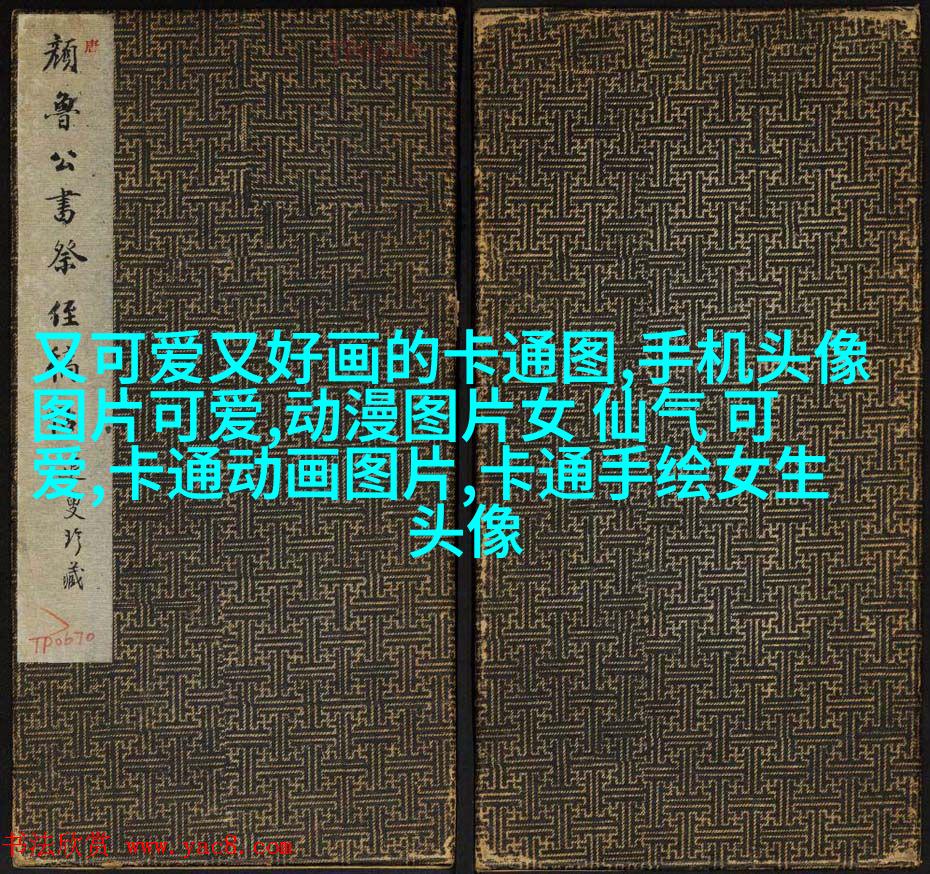 唐
颜鲁公书祭侄
珍藏
TP0670
又可爱又好画的卡通图,手机头像
图片可爱,动漫图片女 仙气 可
爱,卡通动画图片,卡通手绘女生
头像
书法欣赏 www.yac8.com